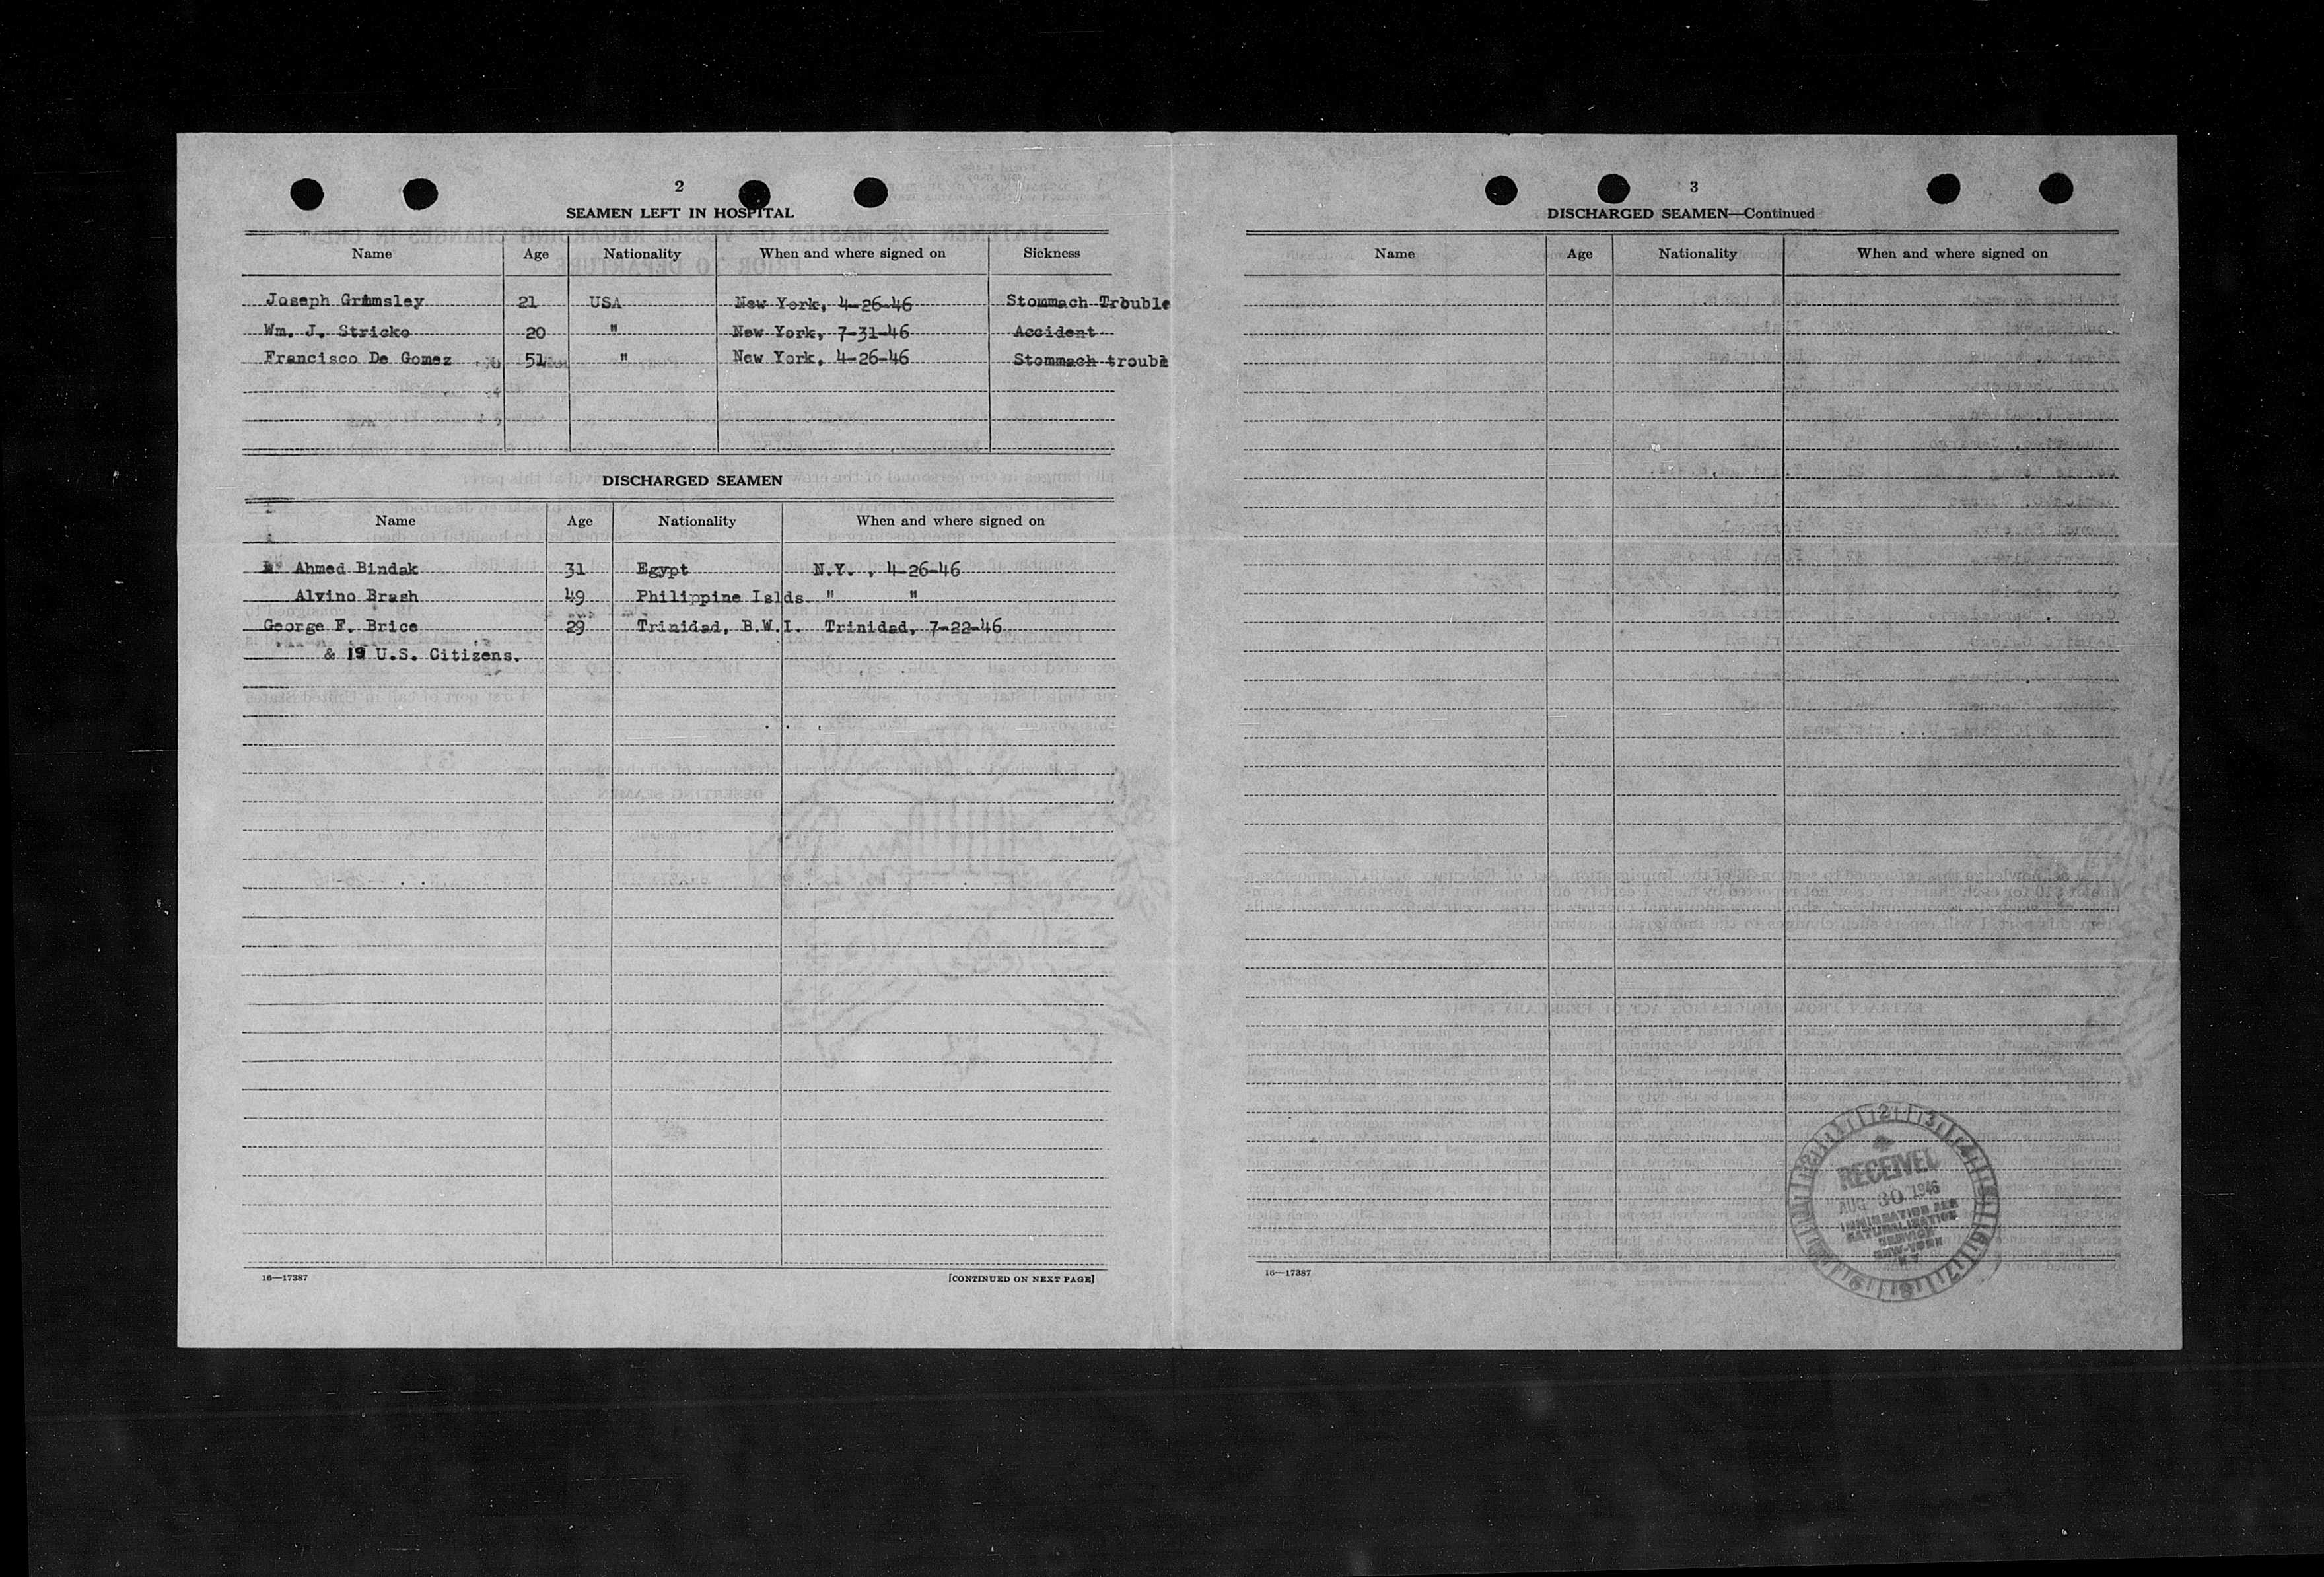 2
SEAMEN LEFT IN HOSPITAL
Name Age Nationality When and where signed on Sickness
Joseph Grimsley 21 USA New York, 4-26-46 Stommach Trouble
Wm. J. Stricko 20 " New York, 7-31-46 Accident
Francisco De Gomez 51 " New York, 4-26-46 Stommach troubl
DISCHARGED SEAMEN
Name Age Nationality When and where signed on
Ahmed Bindak 31 Egypt N.Y. , 4-26-46
Alvino Brash 49 Philippine Islds. " "
George F. Brice 29 Trinidad, B.W.I. Trinidad, 7-22-46
& 19 U.S. Citizens.
16—17387 [CONTINUED ON NEXT PAGE]
3
DISCHARGED SEAMEN—Continued
Name Age Nationality When and where signed on
RECEIVED
AUG 30 1946
IMMIGRATION AND
NATURALIZATION
SERVICE
NEW YORK
N.Y.
16—17387